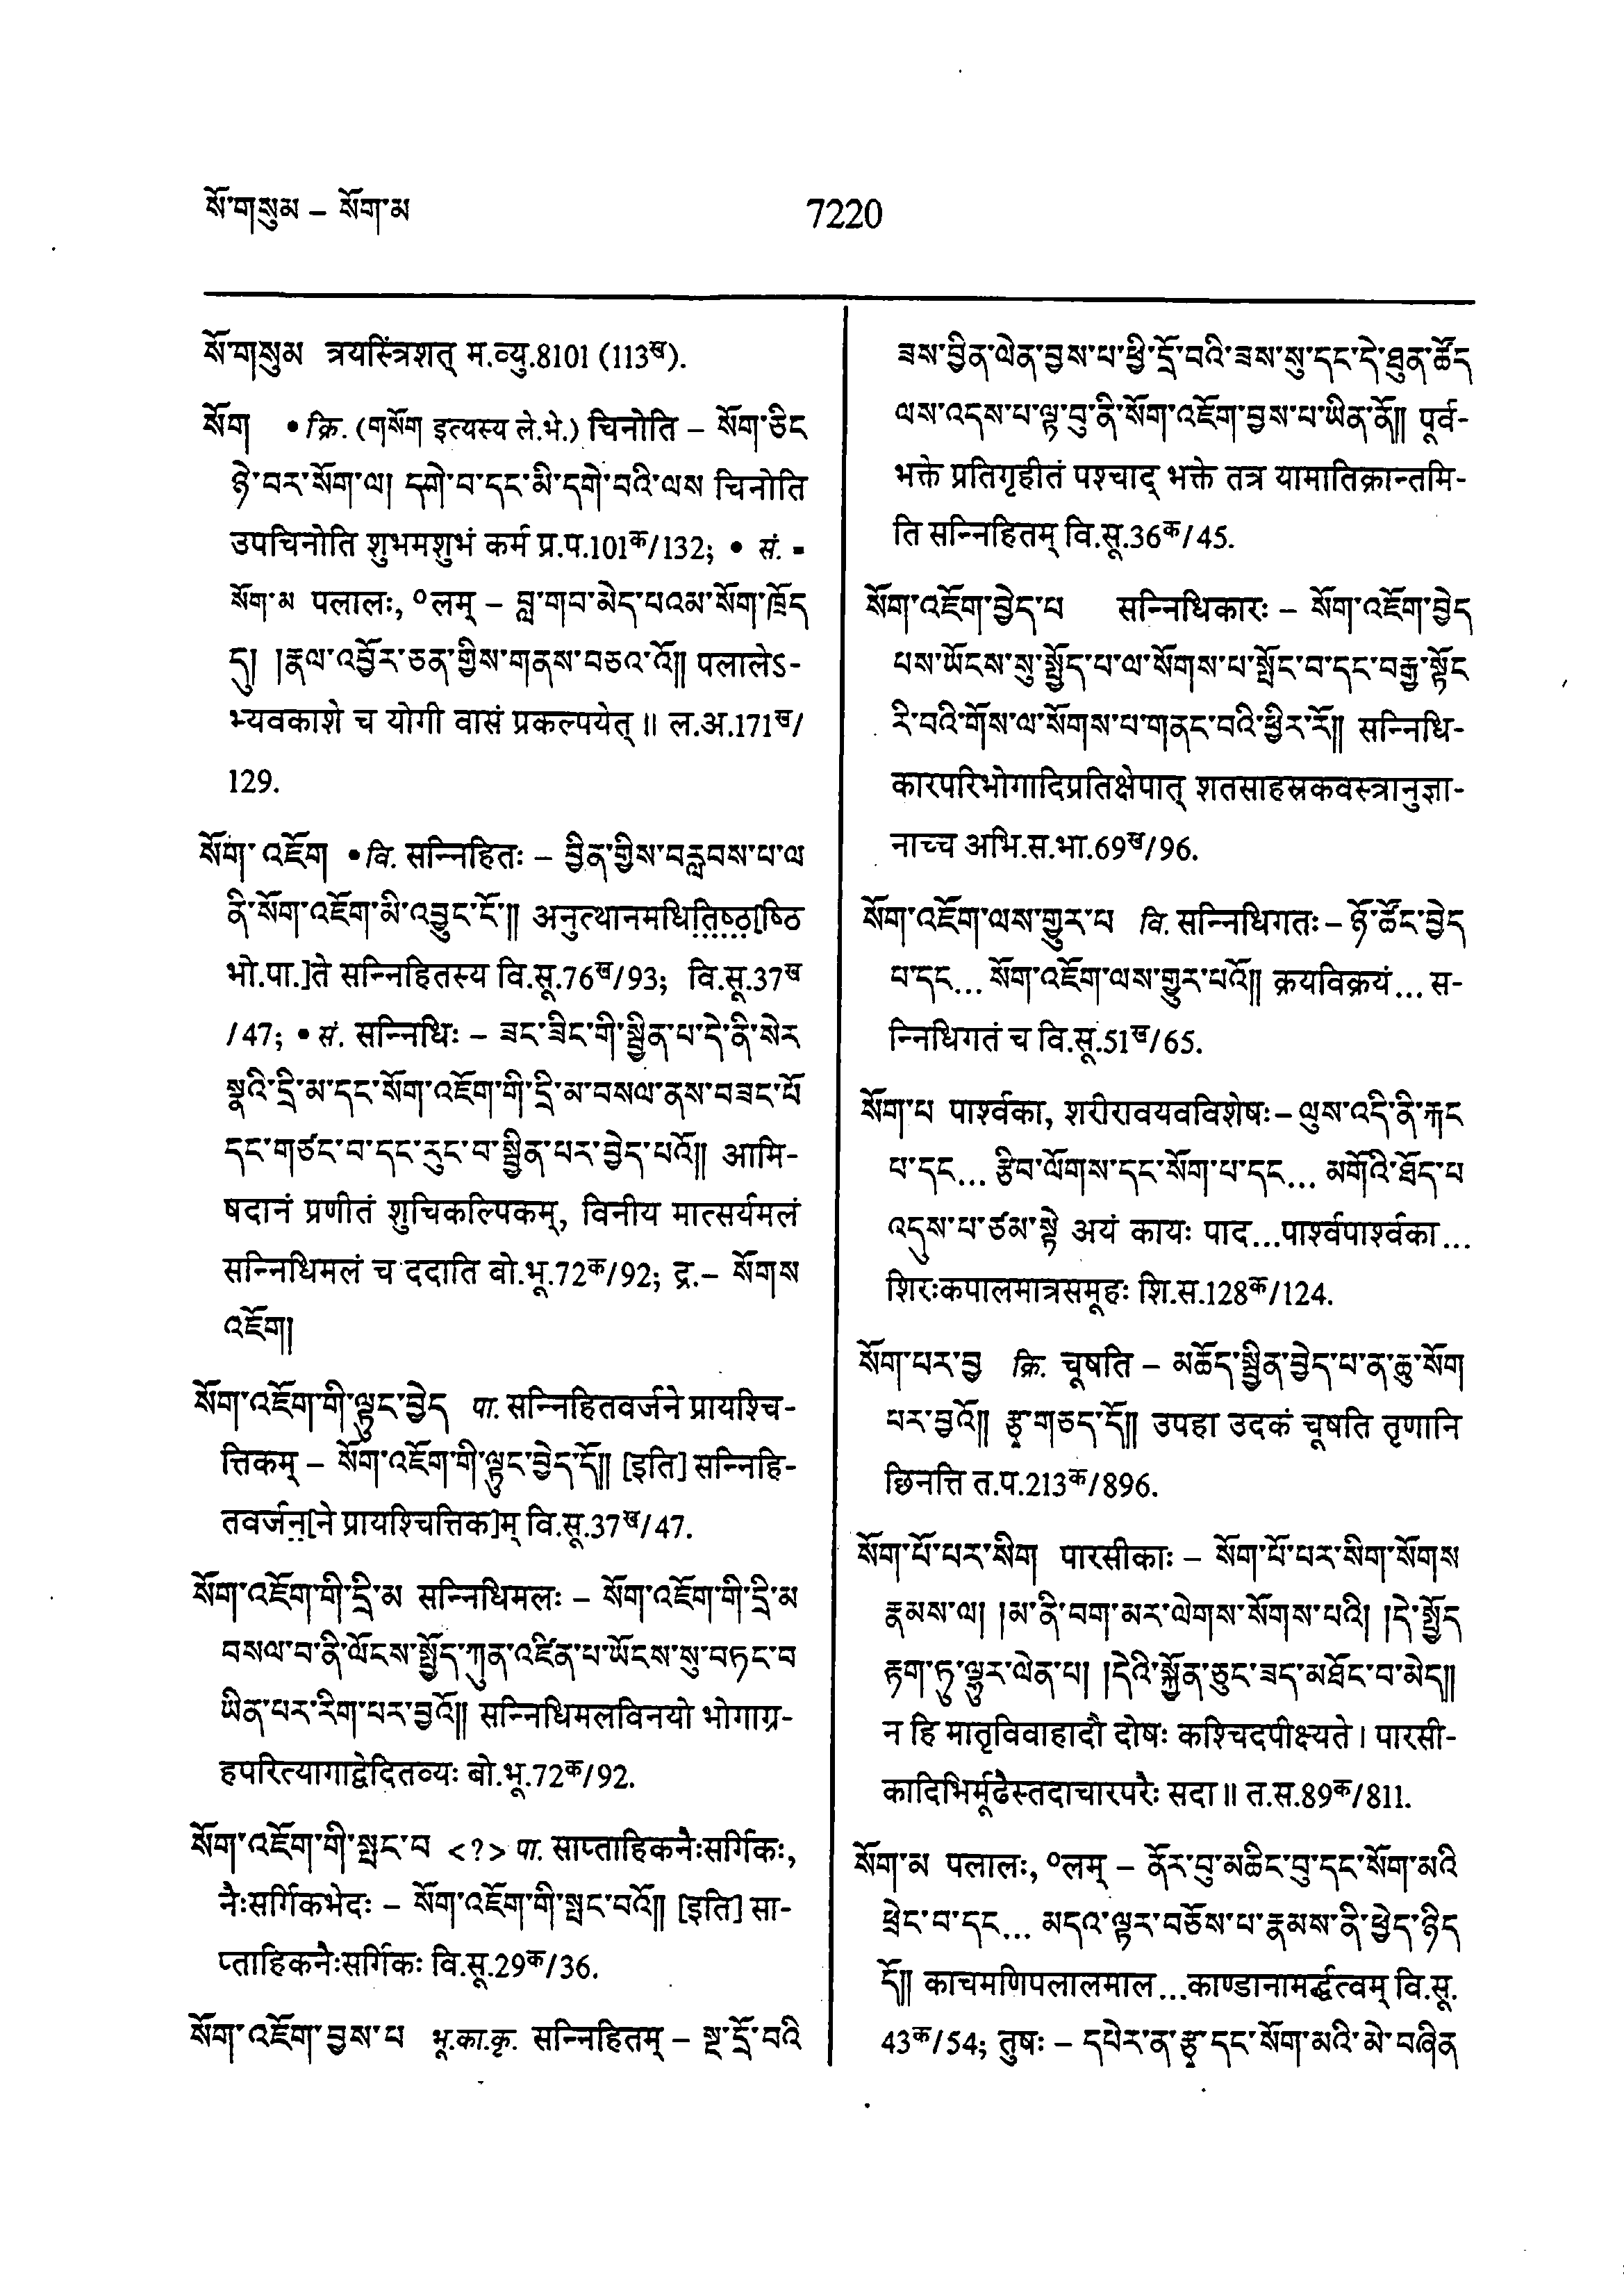 སོ་གསུམ – སོག་མ
7220
སོ་གསུམ त्रयस्त्रिंशत् म.व्यु.8101 (113ख).
སོག • क्रि. (གསོག इत्यस्य ले.भे.) चिनोति – སོག་ཅིང
ཉེ་བར་སོག་ལ། དགེ་བ་དང་མི་དགེ་བའི་ལས चिनोति
उपचिनोति शुभमशुभं कर्म प्र.प.101क/132; • सं. =
སོག་མ पलालः, ०लम् – བླ་གབ་མེད་པའམ་སོག་ཁྲོད
དུ། །རྣལ་འབྱོར་ཅན་གྱིས་གནས་བཅའ་འོ།། पलालेऽ-
भ्यवकाशे च योगी वासं प्रकल्पयेत् ॥ ल.अ.171ख/
129.
སོག་འཇོག • वि. सन्निहितः – བྱིན་གྱིས་བརླབས་པ་ལ
ནི་སོག་འཇོག་མི་འབྱུང་ངོ་།། अनुत्थानमधितिष्ठ[ष्ठि
भो.पा.]ते सन्निहितस्य वि.सू.76ख/93; वि.सू.37ख
/47; • सं. सन्निधिः – ཟང་ཟིང་གི་སྦྱིན་པ་དེ་ནི་སེར
སྣའི་དྲི་མ་དང་སོག་འཇོག་གི་དྲི་མ་བསལ་ནས་བཟང་པོ
དང་གཙང་བ་དང་རུང་བ་སྦྱིན་པར་བྱེད་པའོ།། आमि-
षदानं प्रणीतं शुचिकल्पिकम्, विनीय मात्सर्यमलं
सन्निधिमलं च ददाति बो.भू.72क/92; द्र.– སོགས
འཇོག།
སོག་འཇོག་གི་ལྟུང་བྱེད पा. सन्निहितवर्जने प्रायश्चि-
त्तिकम् – སོག་འཇོག་གི་ལྟུང་བྱེད་དོ།། [इति] सन्निहि-
तवर्जन[ने प्रायश्चित्तिक]म् वि.सू.37ख/47.
སོག་འཇོག་གི་དྲི་མ सन्निधिमलः – སོག་འཇོག་གི་དྲི་མ
བསལ་བ་ནི་ལོངས་སྤྱོད་ཀུན་འཛིན་པ་ཡོངས་སུ་བཏང་བ
ཡིན་པར་རིག་པར་བྱའོ།། सन्निधिमलविनयो भोगाग्र-
हपरित्यागाद्वेदितव्यः बो.भू.72क/92.
སོག་འཇོག་གི་སྤང་བ <?> पा. साप्ताहिकनैःसर्गिकः,
नैःसर्गिकभेदः – སོག་འཇོག་གི་སྤང་བའོ།། [इति] सा-
प्ताहिकनैःसर्गिकः वि.सू.29क/36.
སོག་འཇོག་བྱས་པ भू.का.कृ. सन्निहितम् – སྔ་དྲོ་བའི
ཟས་བྱིན་ལེན་བྱས་པ་ཕྱི་དྲོ་བའི་ཟས་སུ་དང་དེ་ཐུན་ཚོད
ལས་འདས་པ་ལྟ་བུ་ནི་སོག་འཇོག་བྱས་པ་ཡིན་ནོ།། पूर्व-
भक्ते प्रतिगृहीतं पश्चाद् भक्ते तत्र यामातिक्रान्तमि-
ति सन्निहितम् वि.सू.36क/45.
སོག་འཇོག་བྱེད་པ सन्निधिकारः – སོག་འཇོག་བྱེད
པས་ཡོངས་སུ་སྤྱོད་པ་ལ་སོགས་པ་སྤོང་བ་དང་བརྒྱ་སྟོང
རི་བའི་གོས་ལ་སོགས་པ་གནང་བའི་ཕྱིར་རོ།། सन्निधि-
कारपरिभोगादिप्रतिक्षेपात् शतसाहस्रकवस्त्रानुज्ञा-
नाच्च अभि.स.भा.69ख/96.
སོག་འཇོག་ལས་གྱུར་པ वि. सन्निधिगतः – ཉོ་ཚོང་བྱེད
པ་དང... སོག་འཇོག་ལས་གྱུར་པའོ།། क्रयविक्रयं... स-
न्निधिगतं च वि.सू.51ख/65.
སོག་པ पार्श्वका, शरीरावयवविशेषः– ལུས་འདི་ནི་རྐང
པ་དང... རྩིབ་ལོགས་དང་སོག་པ་དང... མགོའི་ཐོད་པ
འདུས་པ་ཙམ་སྟེ अयं कायः पाद...पार्श्वपार्श्वका...
शिरःकपालमात्रसमूहः शि.स.128क/124.
སོག་པར་བྱ क्रि. चूषति – མཆོད་སྦྱིན་བྱེད་པ་ན་ཆུ་སོག
པར་བྱའོ།། རྩྭ་གཅད་དོ།། उपहा उदकं चूषति तृणानि
छिनत्ति त.प.213क/896.
སོག་པོ་པར་སིག पारसीकाः – སོག་པོ་པར་སིག་སོགས
རྣམས་ལ། །མ་ནི་བག་མར་ལེགས་སོགས་པའི། །དེ་སྤྱོད
རྟག་ཏུ་ལྷུར་ལེན་པ། །དེའི་སྐྱོན་ཅུང་ཟད་མཐོང་བ་མེད།།
न हि मातृविवाहादौ दोषः कश्चिदपीक्ष्यते । पारसी-
कादिभिर्मूढैस्तदाचारपरैः सदा ॥ त.स.89क/811.
སོག་མ पलालः, ०लम् – ནོར་བུ་མཆིང་བུ་དང་སོག་མའི
ཕྲེང་བ་དང... མདའ་ལྟར་བཅོས་པ་རྣམས་ནི་ཕྱེད་ཉིད
དོ།། काचमणिपलालमाल...काण्डानामर्द्धत्वम् वि.सू.
43क/54; तुषः – དཔེར་ན་རྩྭ་དང་སོག་མའི་མེ་བཞིན